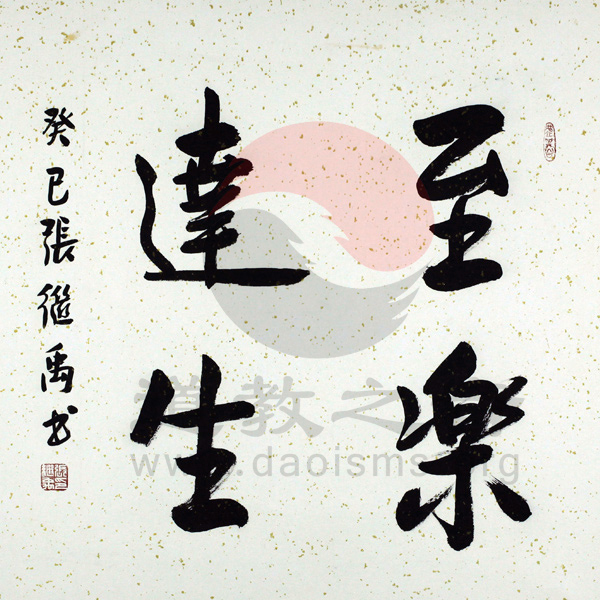 至樂
達生
癸巳張繼禹书
道教之
www.daoisms.org